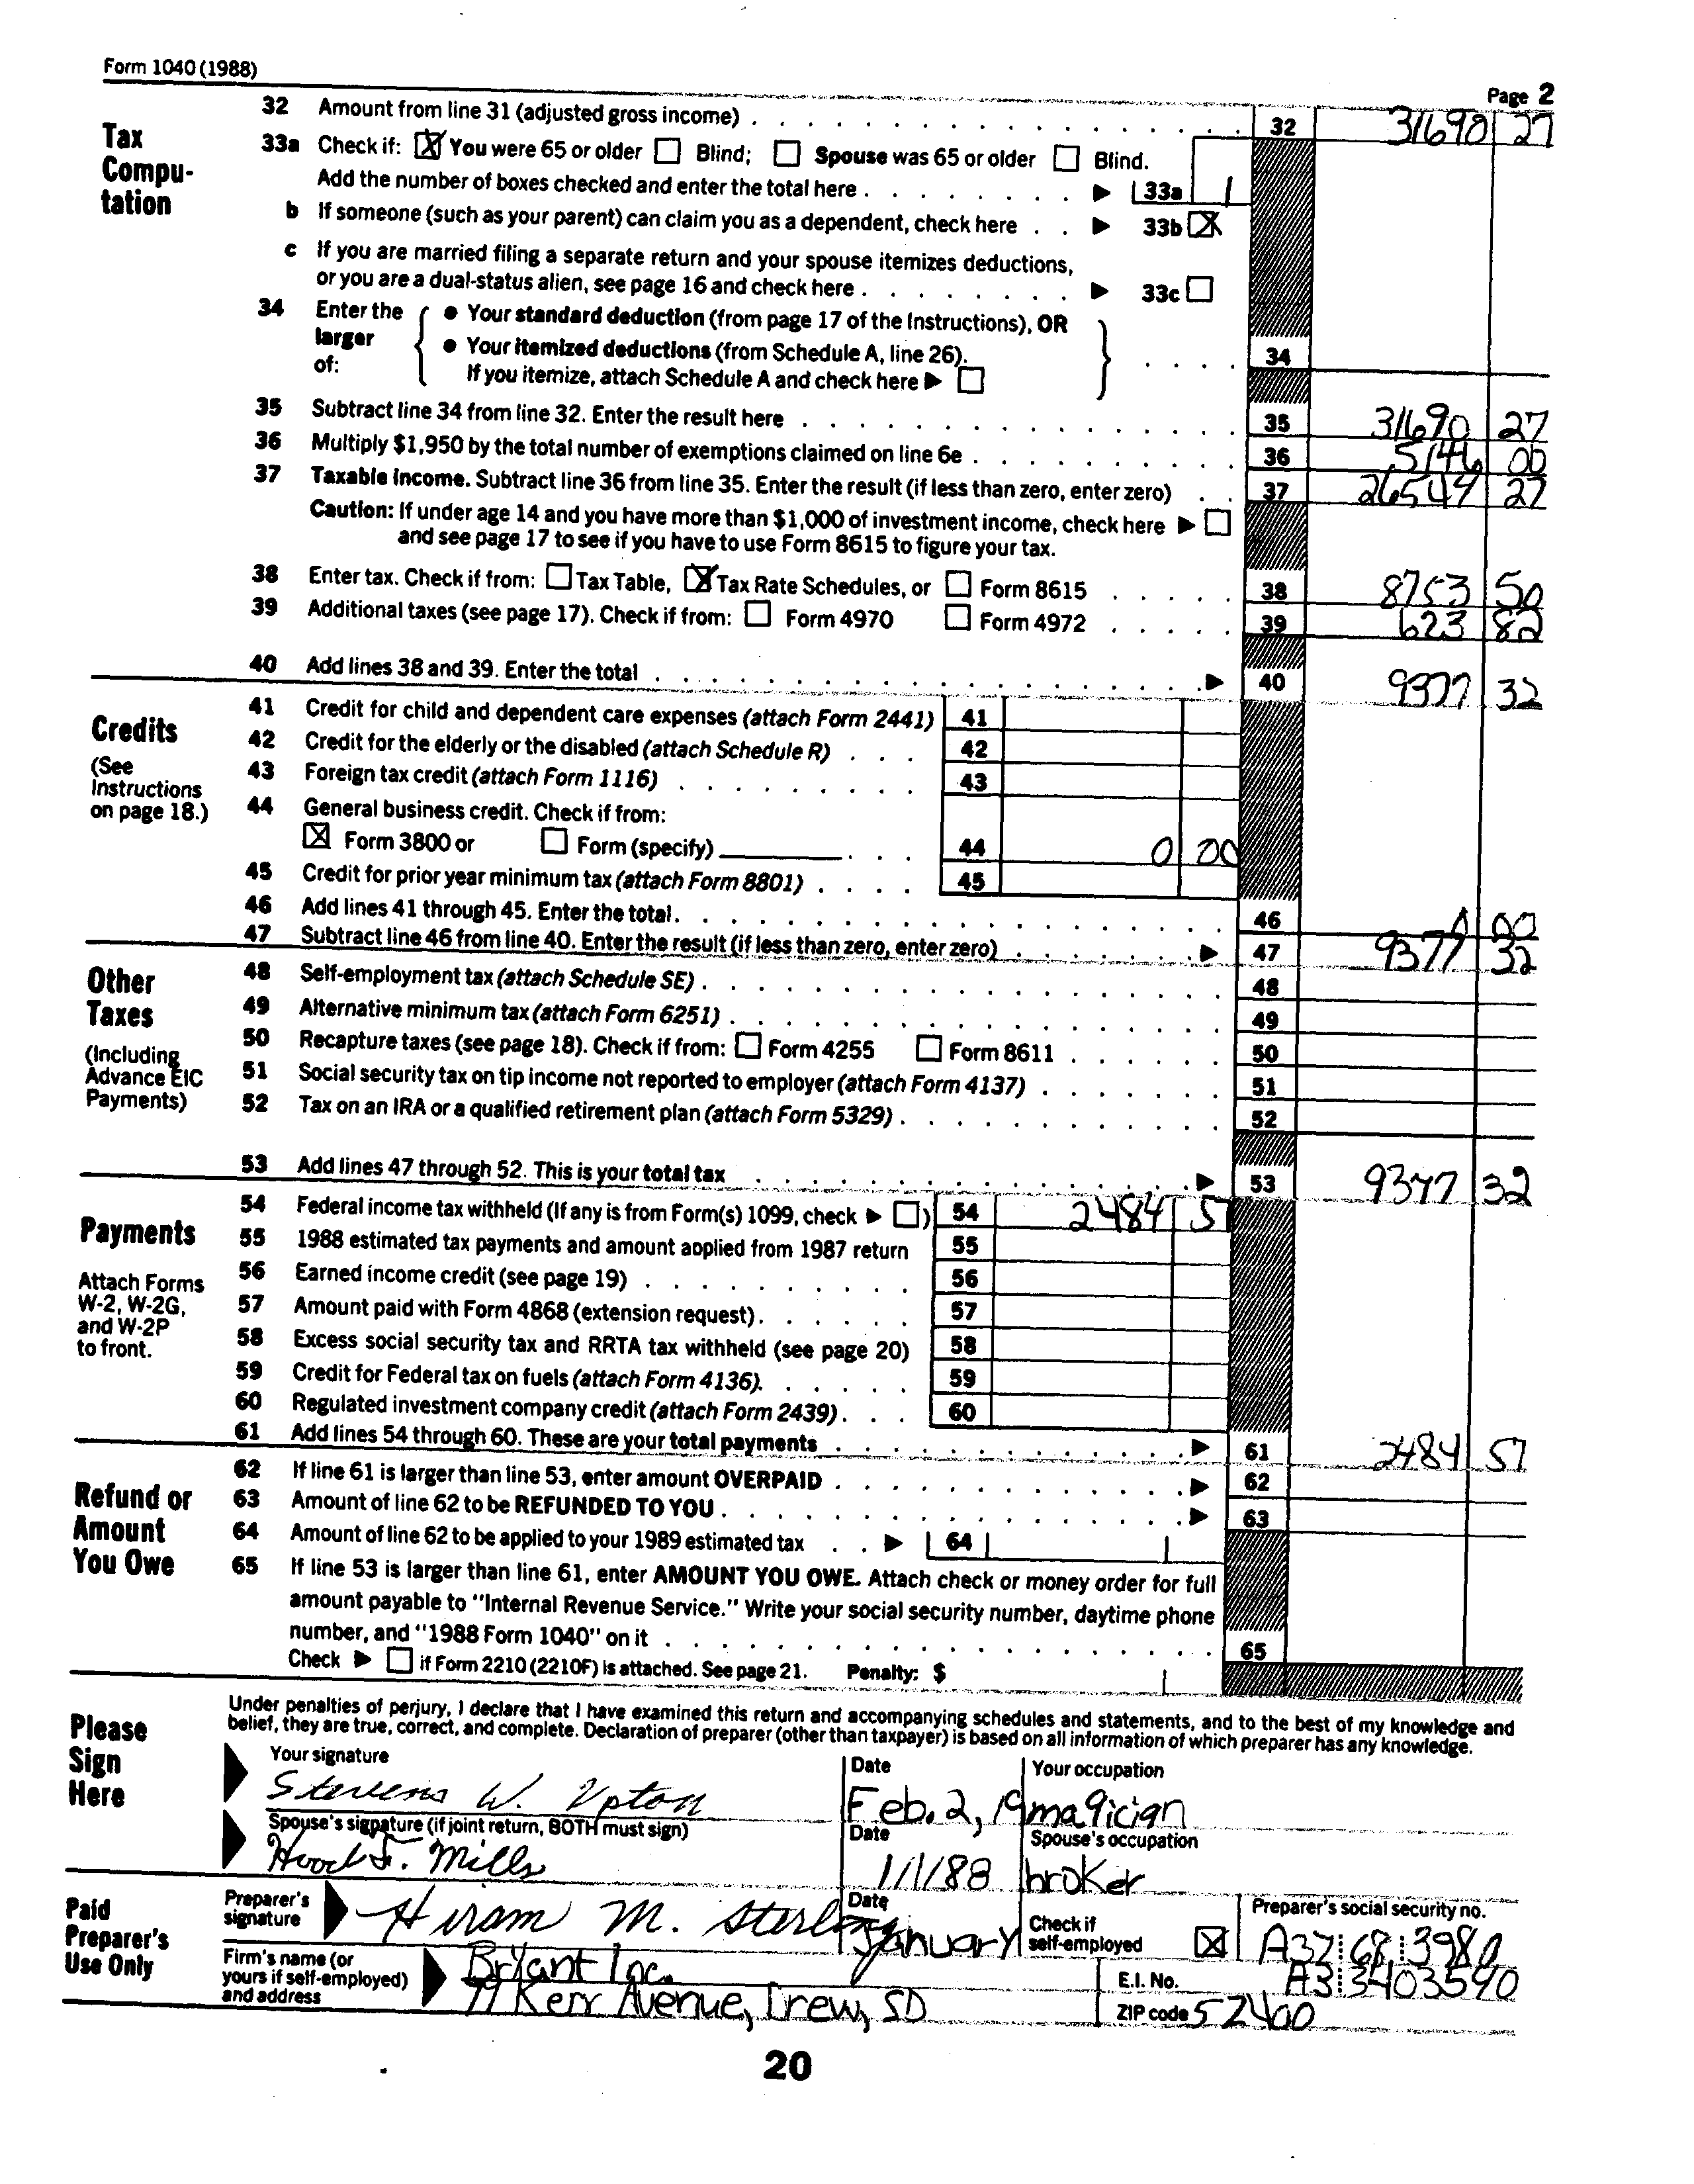 Form 1040 (1988)
Page 2
Tax Compu-tation
32 Amount from line 31 (adjusted gross income) 32 31690 27
33a Check if: [X] You were 65 or older [ ] Blind; [ ] Spouse was 65 or older [ ] Blind.
Add the number of boxes checked and enter the total here ▶ 33a 1
b If someone (such as your parent) can claim you as a dependent, check here ▶ 33b [X]
c If you are married filing a separate return and your spouse itemizes deductions,
or you are a dual-status alien, see page 16 and check here ▶ 33c [ ]
34 Enter the larger of:
● Your standard deduction (from page 17 of the Instructions), OR
● Your itemized deductions (from Schedule A, line 26).
If you itemize, attach Schedule A and check here ▶ [ ]
34
35 Subtract line 34 from line 32. Enter the result here 35 31690 27
36 Multiply $1,950 by the total number of exemptions claimed on line 6e 36 5146 00
37 Taxable income. Subtract line 36 from line 35. Enter the result (if less than zero, enter zero) 37 26544 27
Caution: If under age 14 and you have more than $1,000 of investment income, check here ▶ [ ]
and see page 17 to see if you have to use Form 8615 to figure your tax.
38 Enter tax. Check if from: [ ] Tax Table, [X] Tax Rate Schedules, or [ ] Form 8615 38 8753 50
39 Additional taxes (see page 17). Check if from: [ ] Form 4970 [ ] Form 4972 39 623 82
40 Add lines 38 and 39. Enter the total ▶ 40 9377 32
Credits
(See Instructions on page 18.)
41 Credit for child and dependent care expenses (attach Form 2441) 41
42 Credit for the elderly or the disabled (attach Schedule R) 42
43 Foreign tax credit (attach Form 1116) 43
44 General business credit. Check if from:
[X] Form 3800 or [ ] Form (specify) 44 0 00
45 Credit for prior year minimum tax (attach Form 8801) 45
46 Add lines 41 through 45. Enter the total. 46 0 00
47 Subtract line 46 from line 40. Enter the result (if less than zero, enter zero) ▶ 47 9377 32
Other Taxes
(Including Advance EIC Payments)
48 Self-employment tax (attach Schedule SE) 48
49 Alternative minimum tax (attach Form 6251) 49
50 Recapture taxes (see page 18). Check if from: [ ] Form 4255 [ ] Form 8611 50
51 Social security tax on tip income not reported to employer (attach Form 4137) 51
52 Tax on an IRA or a qualified retirement plan (attach Form 5329) 52
53 Add lines 47 through 52. This is your total tax ▶ 53 9377 32
Payments
Attach Forms W-2, W-2G, and W-2P to front.
54 Federal income tax withheld (If any is from Form(s) 1099, check ▶ [ ]) 54 2484 57
55 1988 estimated tax payments and amount applied from 1987 return 55
56 Earned income credit (see page 19) 56
57 Amount paid with Form 4868 (extension request) 57
58 Excess social security tax and RRTA tax withheld (see page 20) 58
59 Credit for Federal tax on fuels (attach Form 4136). 59
60 Regulated investment company credit (attach Form 2439) 60
61 Add lines 54 through 60. These are your total payments ▶ 61 2484 57
Refund or Amount You Owe
62 If line 61 is larger than line 53, enter amount OVERPAID ▶ 62
63 Amount of line 62 to be REFUNDED TO YOU ▶ 63
64 Amount of line 62 to be applied to your 1989 estimated tax ▶ 64
65 If line 53 is larger than line 61, enter AMOUNT YOU OWE. Attach check or money order for full
amount payable to "Internal Revenue Service." Write your social security number, daytime phone
number, and "1988 Form 1040" on it 65
Check ▶ [ ] if Form 2210 (2210F) is attached. See page 21. Penalty: $
Please Sign Here
Under penalties of perjury, I declare that I have examined this return and accompanying schedules and statements, and to the best of my knowledge and
belief, they are true, correct, and complete. Declaration of preparer (other than taxpayer) is based on all information of which preparer has any knowledge.
Your signature Date Your occupation
Stevens W. Upton Feb. 2, 19 magician
Spouse's signature (if joint return, BOTH must sign) Date Spouse's occupation
Hood F. Mills 1/1/88 broker
Paid Preparer's Use Only
Preparer's signature Hiram M. Sterling Date January Check if self-employed [X] Preparer's social security no. A37 68 3980
Firm's name (or yours if self-employed) and address Bryant Inc. E.I. No. A3 3403590
77 Kerr Avenue, Drew, SD ZIP code 52400
20